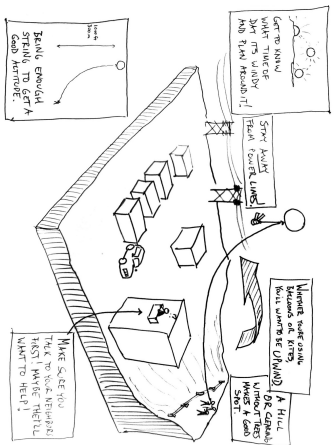 GET TO KNOW
WHAT TIME OF
DAY IT'S WINDY
AND PLAN AROUND IT!
STAY AWAY
FROM POWER LINES!
WHETHER YOU'RE USING
BALLOONS OR KITES,
YOU'LL WANT TO BE UPWIND.
A HILL
OR CLEARING
WITHOUT TREES
MAKES A GOOD
SPOT.
BRING ENOUGH
STRING TO GET A
GOOD ALTITUDE.
MAKE SURE YOU
TALK TO YOUR NEIGHBORS
FIRST! MAYBE THEY'LL
WANT TO HELP!